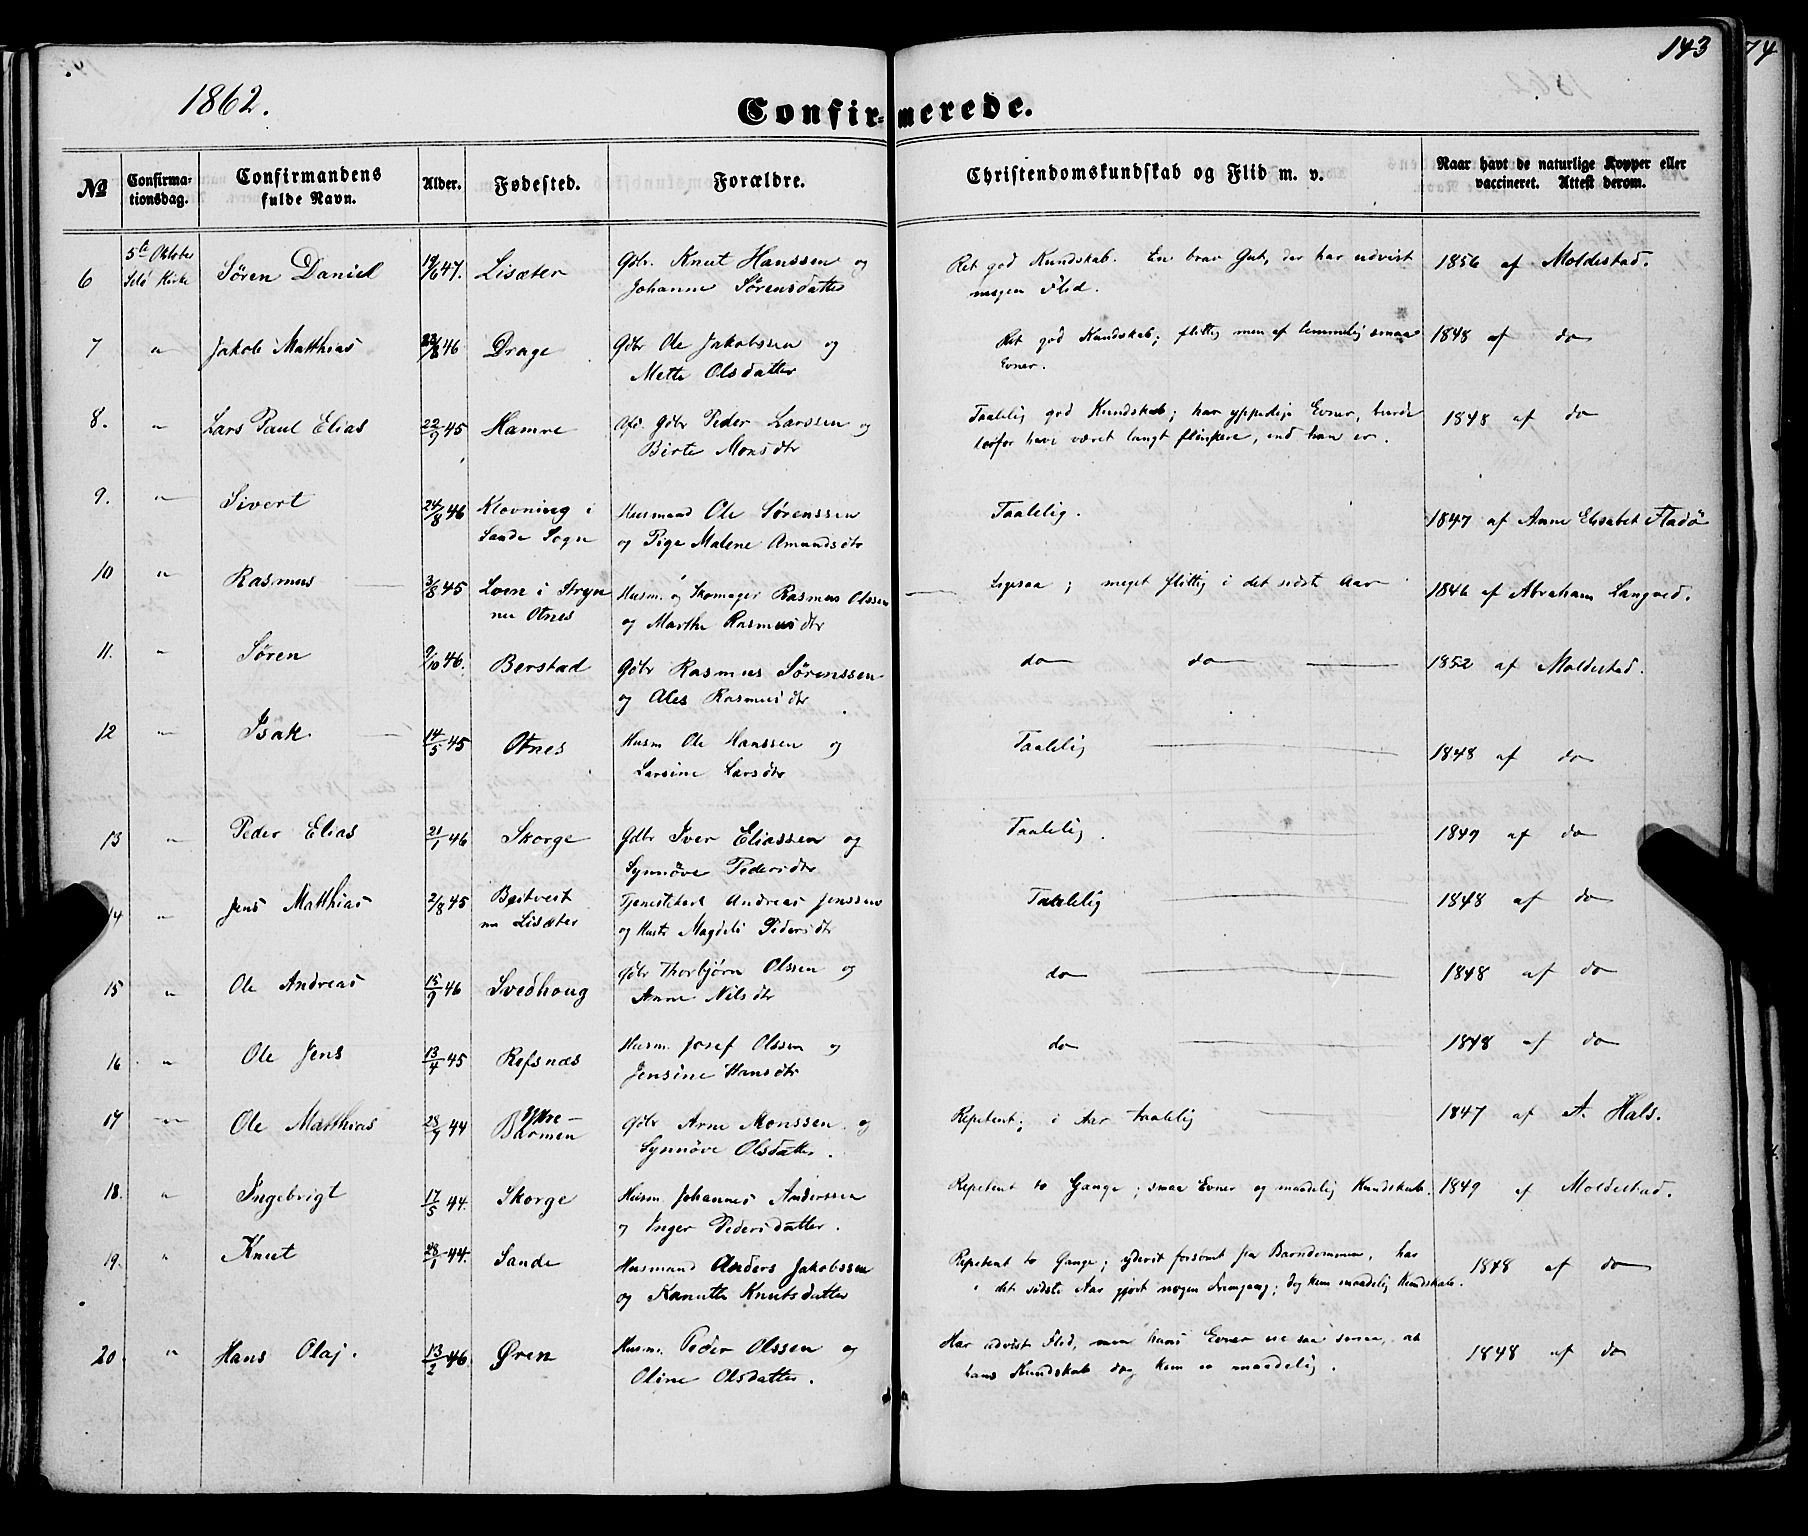 143
74
1862.
Confirmerede.
№ Confirmationsdag. Confirmandens fulde Navn. Alder. Fødested. Forældre. Christendomskundskab og Flid m. v. Naar havt de naturlige Kopper eller vaccineret. Attest derom.
6 5te Oktober Selø Kirke Søren Daniel 19/6 47. Lisæter Gdbr. Knut Hanssen og Johanne Sørensdatter Ret god Kundskab. En brav Gut, der har udvist megen Flid. 1856 af Moldestad.
7 " Jakob Matthias 22/8 46 Drage Gdbr Ole Jakobssen og Mette Olsdatter Ret god Kundskab; flittig men af temmelig smaa Evner. 1848 af do
8. " Lars Paul Elias 22/9 45 Hamre Afd. Gdbr Peder Larssen og Birte Monsdtr Taalelig god Kundskab; har ypperlige Evner, burde derfor have været langt flinkere, end han er. 1848 af do
9. " Sivert 24/8 46 Klovning i Sande Sogn Huusmand Ole Sørenssen og Pige Malene Amundsdtr Taalelig. 1847 af Anne Elisabet Fladø
10 " Rasmus 3/8 45 Loen i Stryn nu Otnes Husm. og Skomager Rasmus Olssen og Marthe Rasmusdtr Ligesaa; meget flittig i det sidste Aar 1846 af Abraham Langved.
11. " Søren 9/10 46. Berstad Gdbr Rasmus Sørenssen og Ales Rasmusdtr do do 1852 af Moldestad.
12 " Isak 14/5 45 Otnes Husm Ole Hanssen og Larsine Larsdtr Taalelig 1848 af do
13 " Peder Elias 21/1 46 Skorge Gdbr Iver Eliassen og Synnøve Pedersdtr Taalelig. 1849 af do
14 " Jens Matthias 2/8 45 Beitveit nu Lisæter Tjenestekarl Andreas Jenssen og Hustr Magdeli Pedersdtr Taalelig 1848 af do
15 " Ole Andreas 15/9 46 Svedhoug Gdbr Thorbjørn Olssen og Anne Nilsdtr do 1848 af do
16 " Ole Jens 13/4 45 Refsnæs Husm. Josef Olssen og Jensine Hansdtr do 1848 af do
17 " Ole Matthias 23/9 44 Ytre-Barmen Gdbr Arne Monssen og Synnøve Olsdatter. Repetent; i Aar taalelig 1847 af A. Hals.
18. " Ingebrigt 17/5 44. Skorge Husm Johannes Anderssen og Inger Pedersdatter. Repetent to Gange; smaa Evner og maadelig Kundskab. 1849 af Moldestad.
19. " Knut 28/1 44. Sande Husmand Anders Jakobssen og Kanutte Knutsdatter Repetent to Gange; yderst forsømt fra Barndommen, har i det sidste Aar gjort nogen Fremgang; dog kun maadelig Kundskab. 1848 af do
20 " Hans Olaj. 13/2 46 Øren Husm. Peder Olssen og Oline Olsdatter. Har udvist Flid, men hans Evner ere saa smaa, at hans Kundskab dog kun er maadelig. 1848 af do